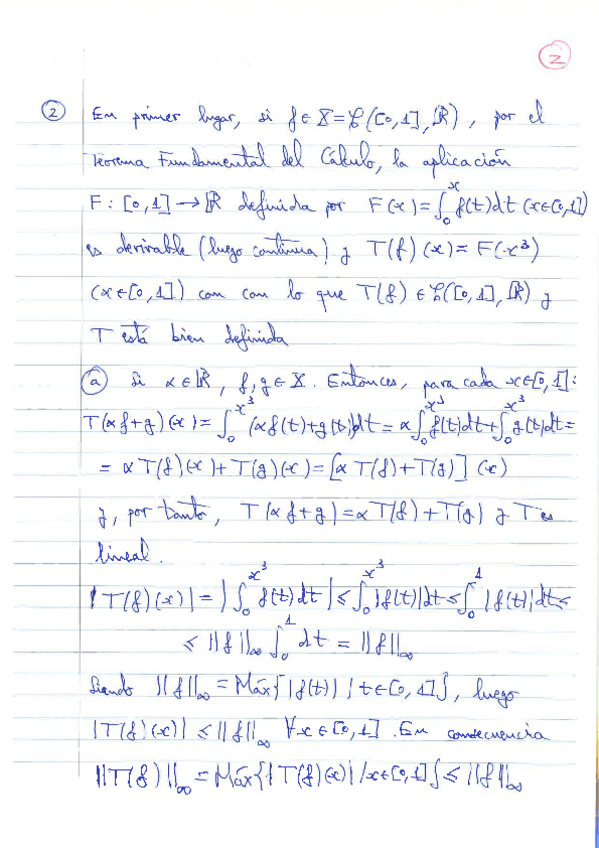 2
② En primer lugar, si f ∈ X = 𝒞([0,1],ℝ), por el
Teorema Fundamental del Cálculo, la aplicación
F : [0,1] → ℝ definida por F(x) = ∫₀ˣ f(t)dt (x∈[0,1])
es derivable (luego continua) y T(f)(x) = F(x³)
(x∈[0,1]) con con lo que T(f) ∈ 𝒞([0,1],ℝ) y
T está bien definida
ⓐ Si α∈ℝ, f,g ∈ X. Entonces, para cada x∈[0,1]:
T(αf+g)(x) = ∫₀^{x³} (αf(t)+g(t))dt = α∫₀^{x³} f(t)dt + ∫₀^{x³} g(t)dt =
= αT(f)(x) + T(g)(x) = [αT(f)+T(g)](x)
y, por tanto, T(αf+g) = αT(f)+T(g) y T es
lineal.
|T(f)(x)| = |∫₀^{x³} f(t)dt| ≤ ∫₀^{x³} |f(t)|dt ≤ ∫₀¹ |f(t)|dt ≤
≤ ||f||∞ ∫₀¹ dt = ||f||∞
Siendo ||f||∞ = Máx{|f(t)| | t∈[0,1]}, luego
|T(f)(x)| ≤ ||f||∞ ∀x∈[0,1]. En consecuencia
||T(f)||∞ = Máx{|T(f)(x)| / x∈[0,1]} ≤ ||f||∞